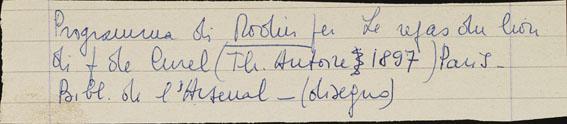 Programma di Rodin per Le repas du lion
di f de Curel (Th. Antoine 1897) Paris -
Bibl. de l'Arsenal - (disegno)